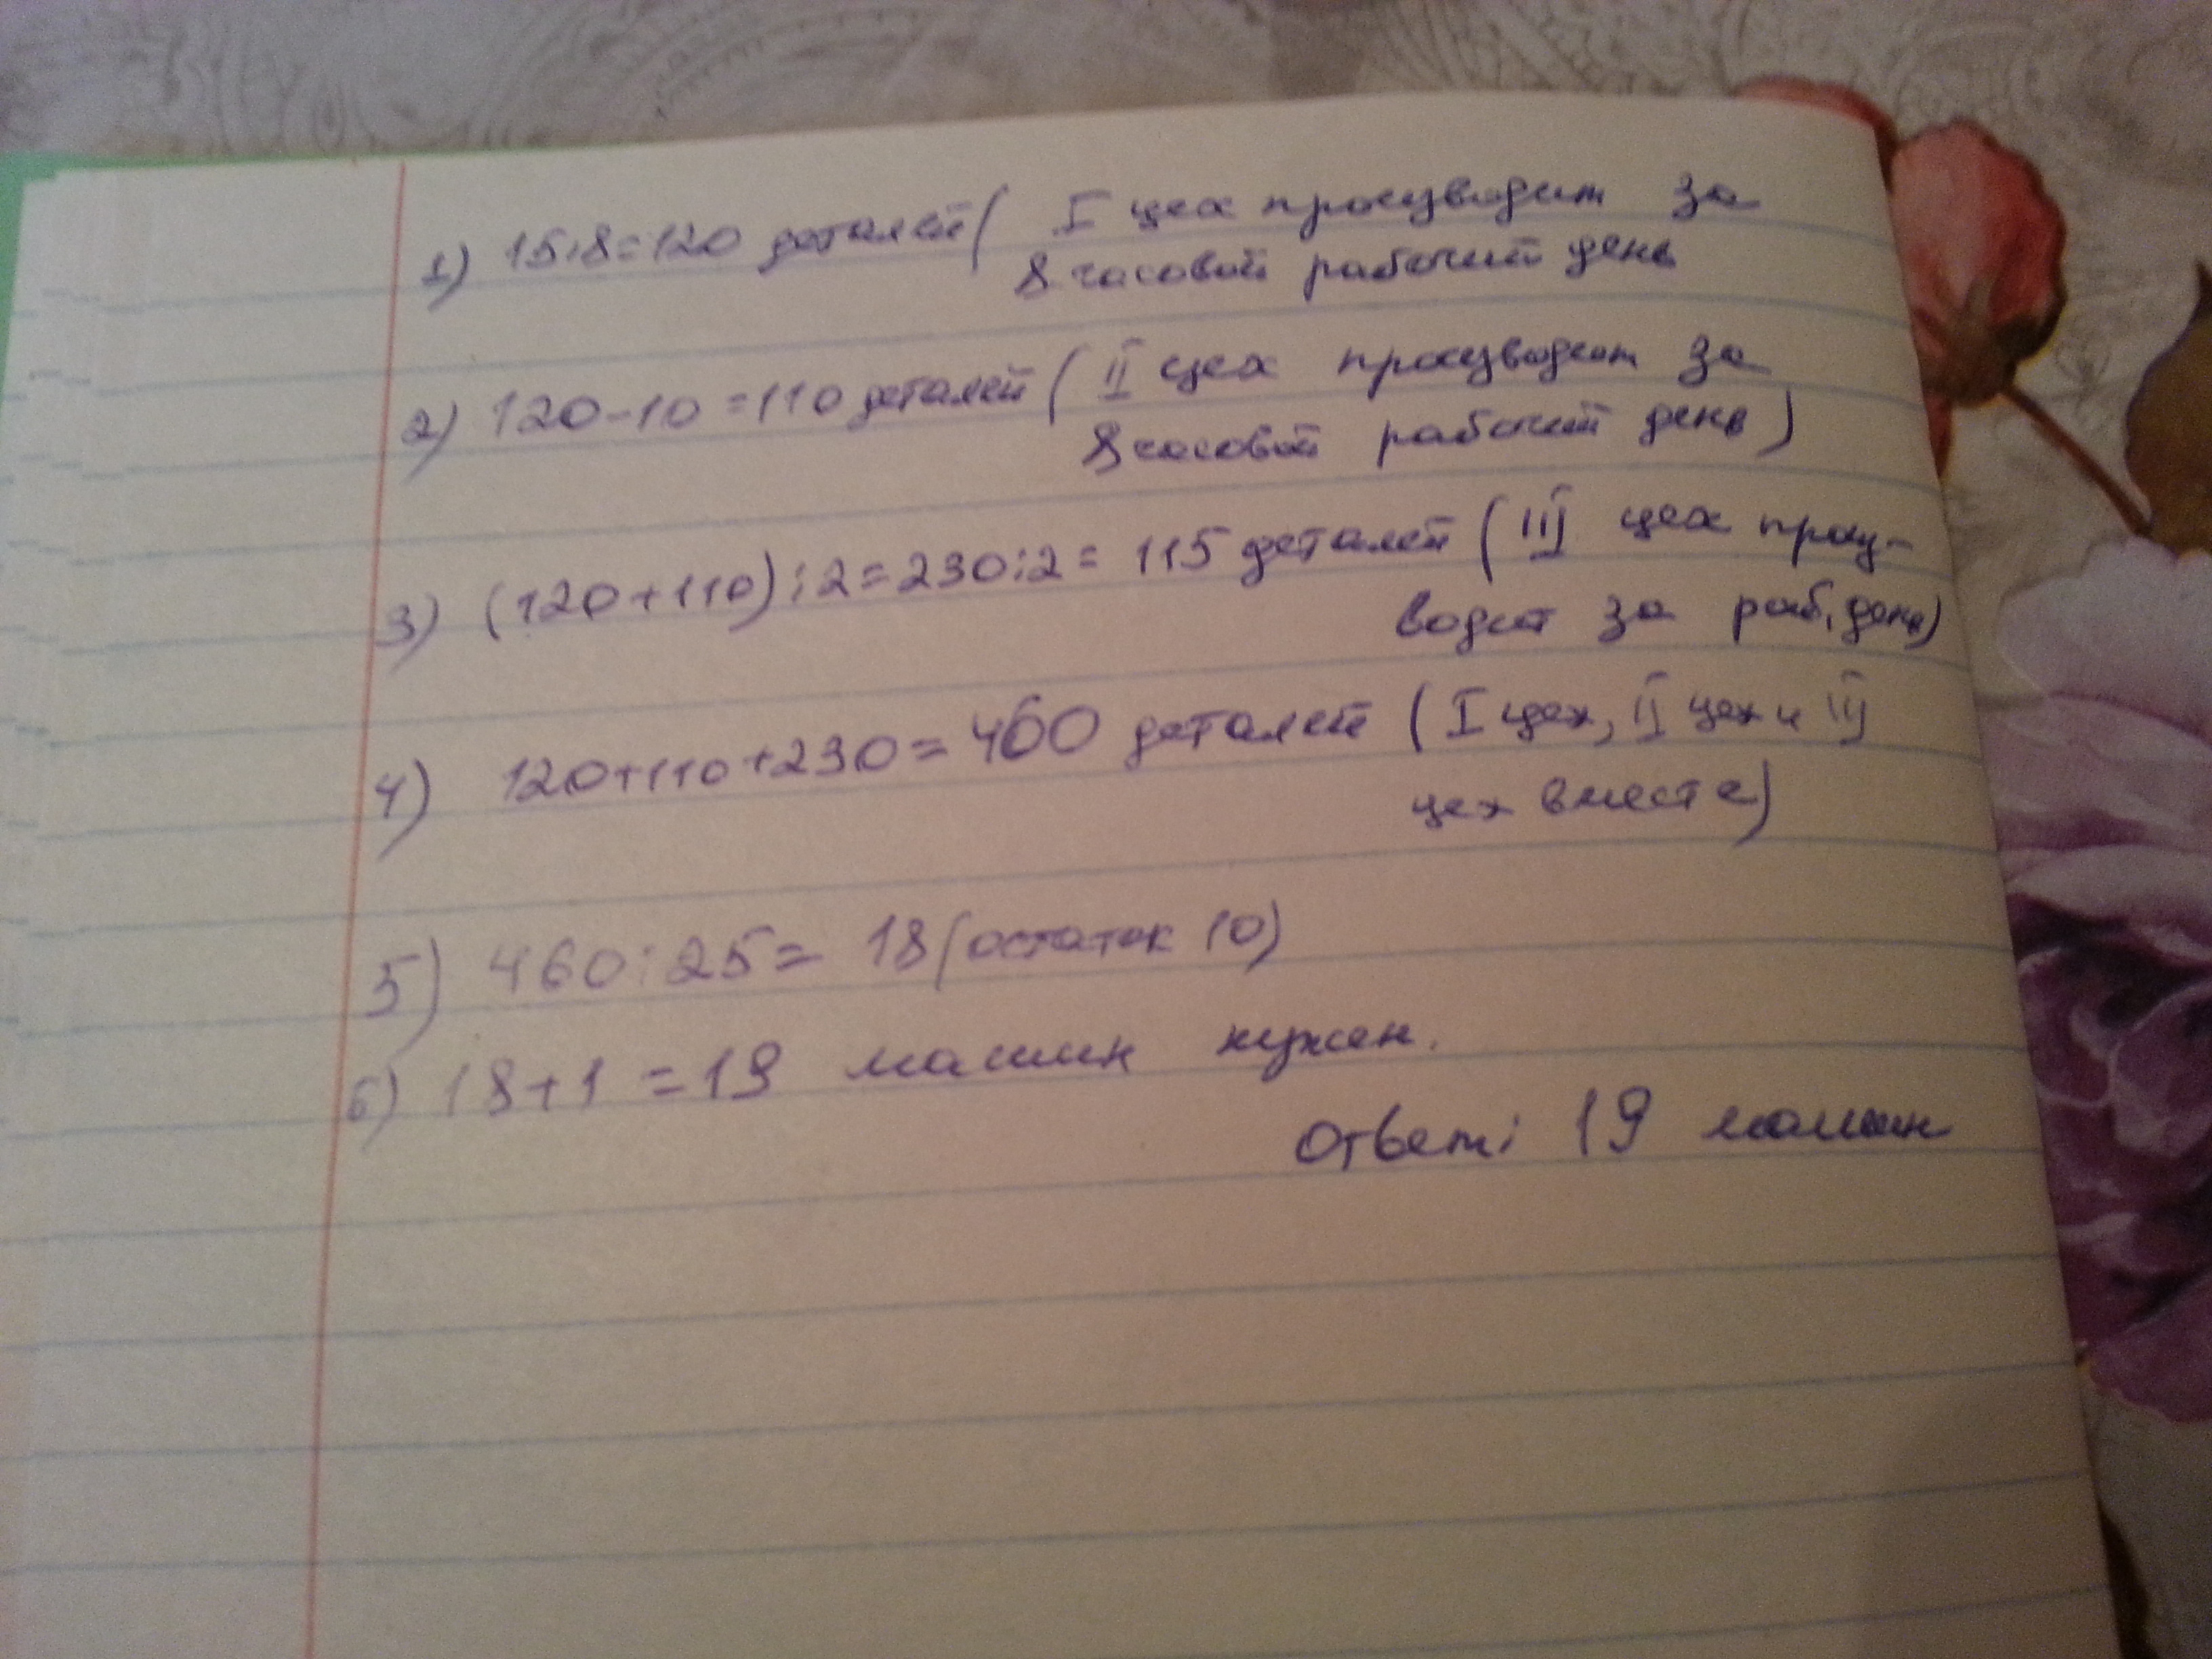 1) 15·8=120 деталей ( I цех производит за
8 часовой рабочий день
2) 120-10=110 деталей ( II цех производит за
8 часовой рабочий день)
3) (120+110):2=230:2= 115 деталей ( III цех произ-
водит за раб. день)
4) 120+110+230=460 деталей ( I цех, II цех и III
цех вместе)
5) 460:25= 18 (остаток 10)
6) 18+1=19 машин нужен.
Ответ: 19 машин